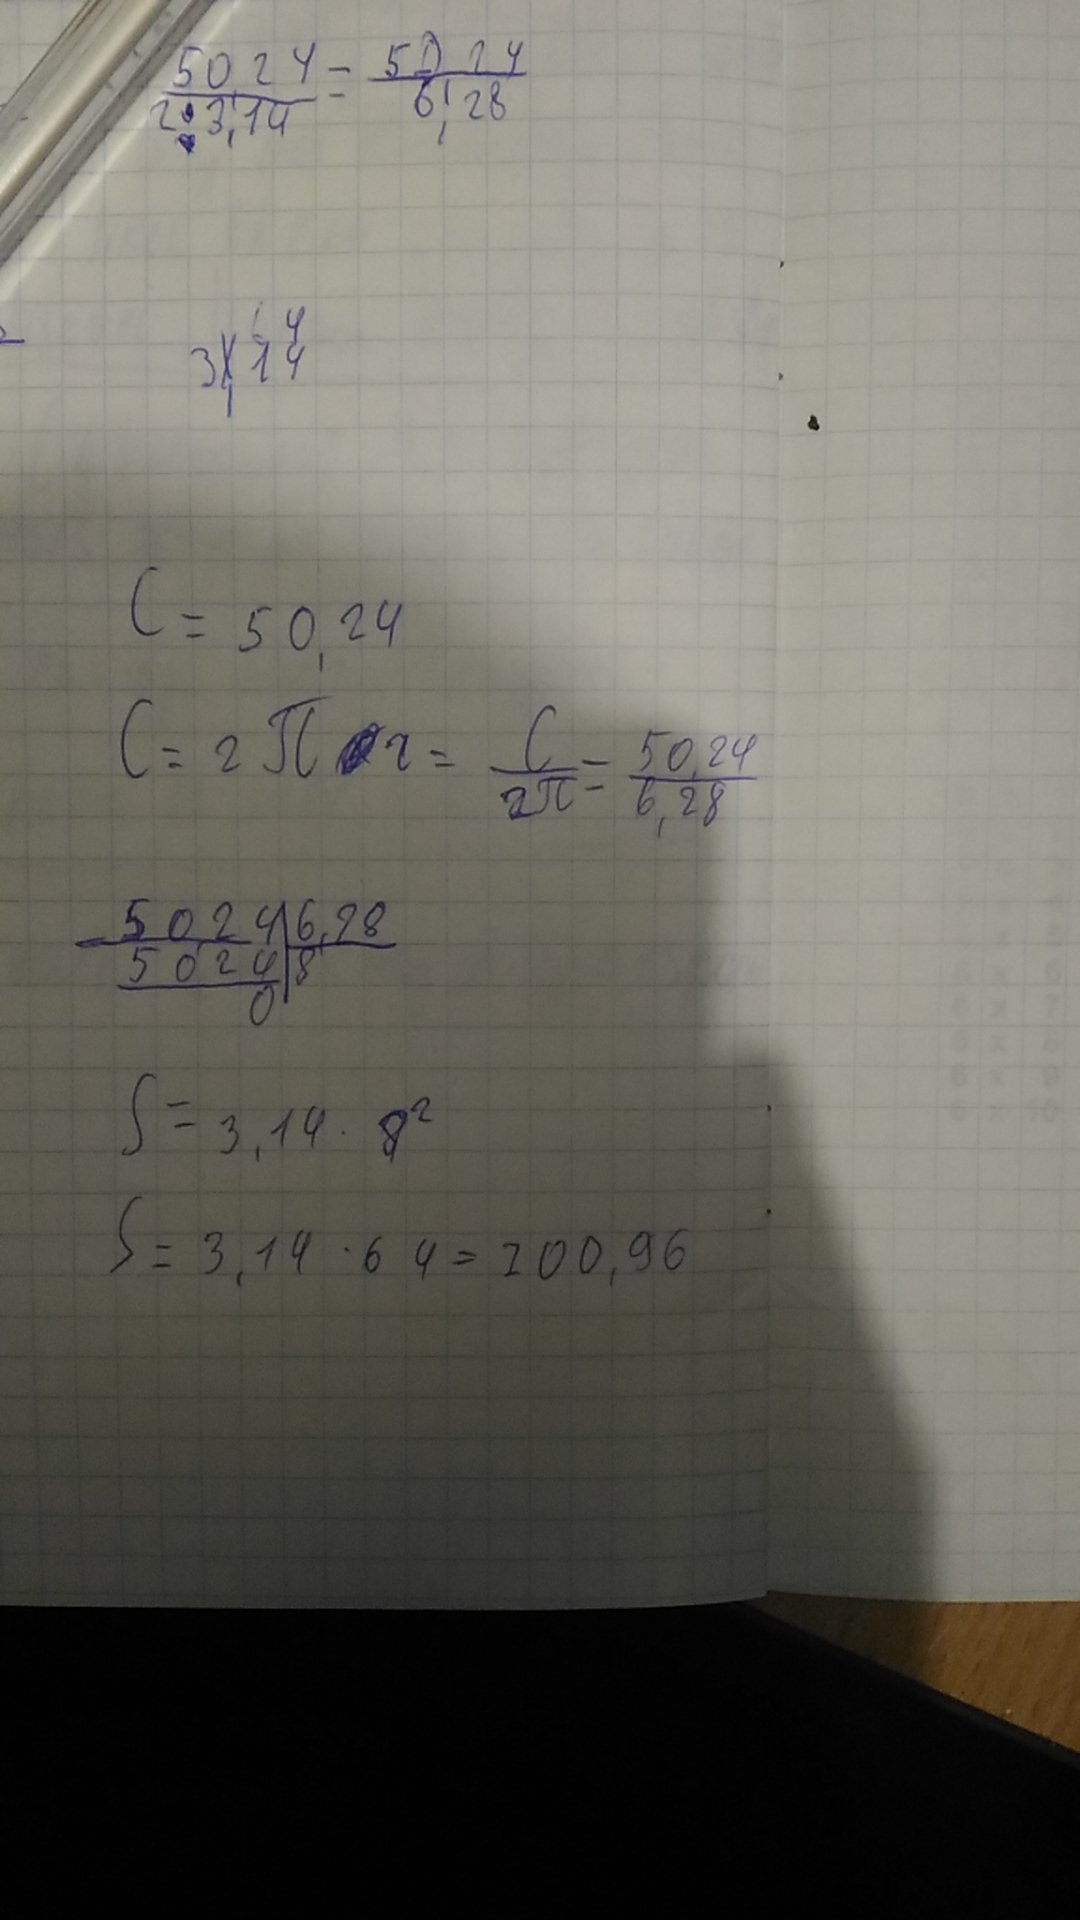 50,24 = 50,24
2 · 3,14 6,28
64
3,14
C = 50,24
C = 2πr = C/2π = 50,24/6,28
5024|6,28
5024|8
0
S = 3,14 · 8²
S = 3,14 · 64 = 200,96